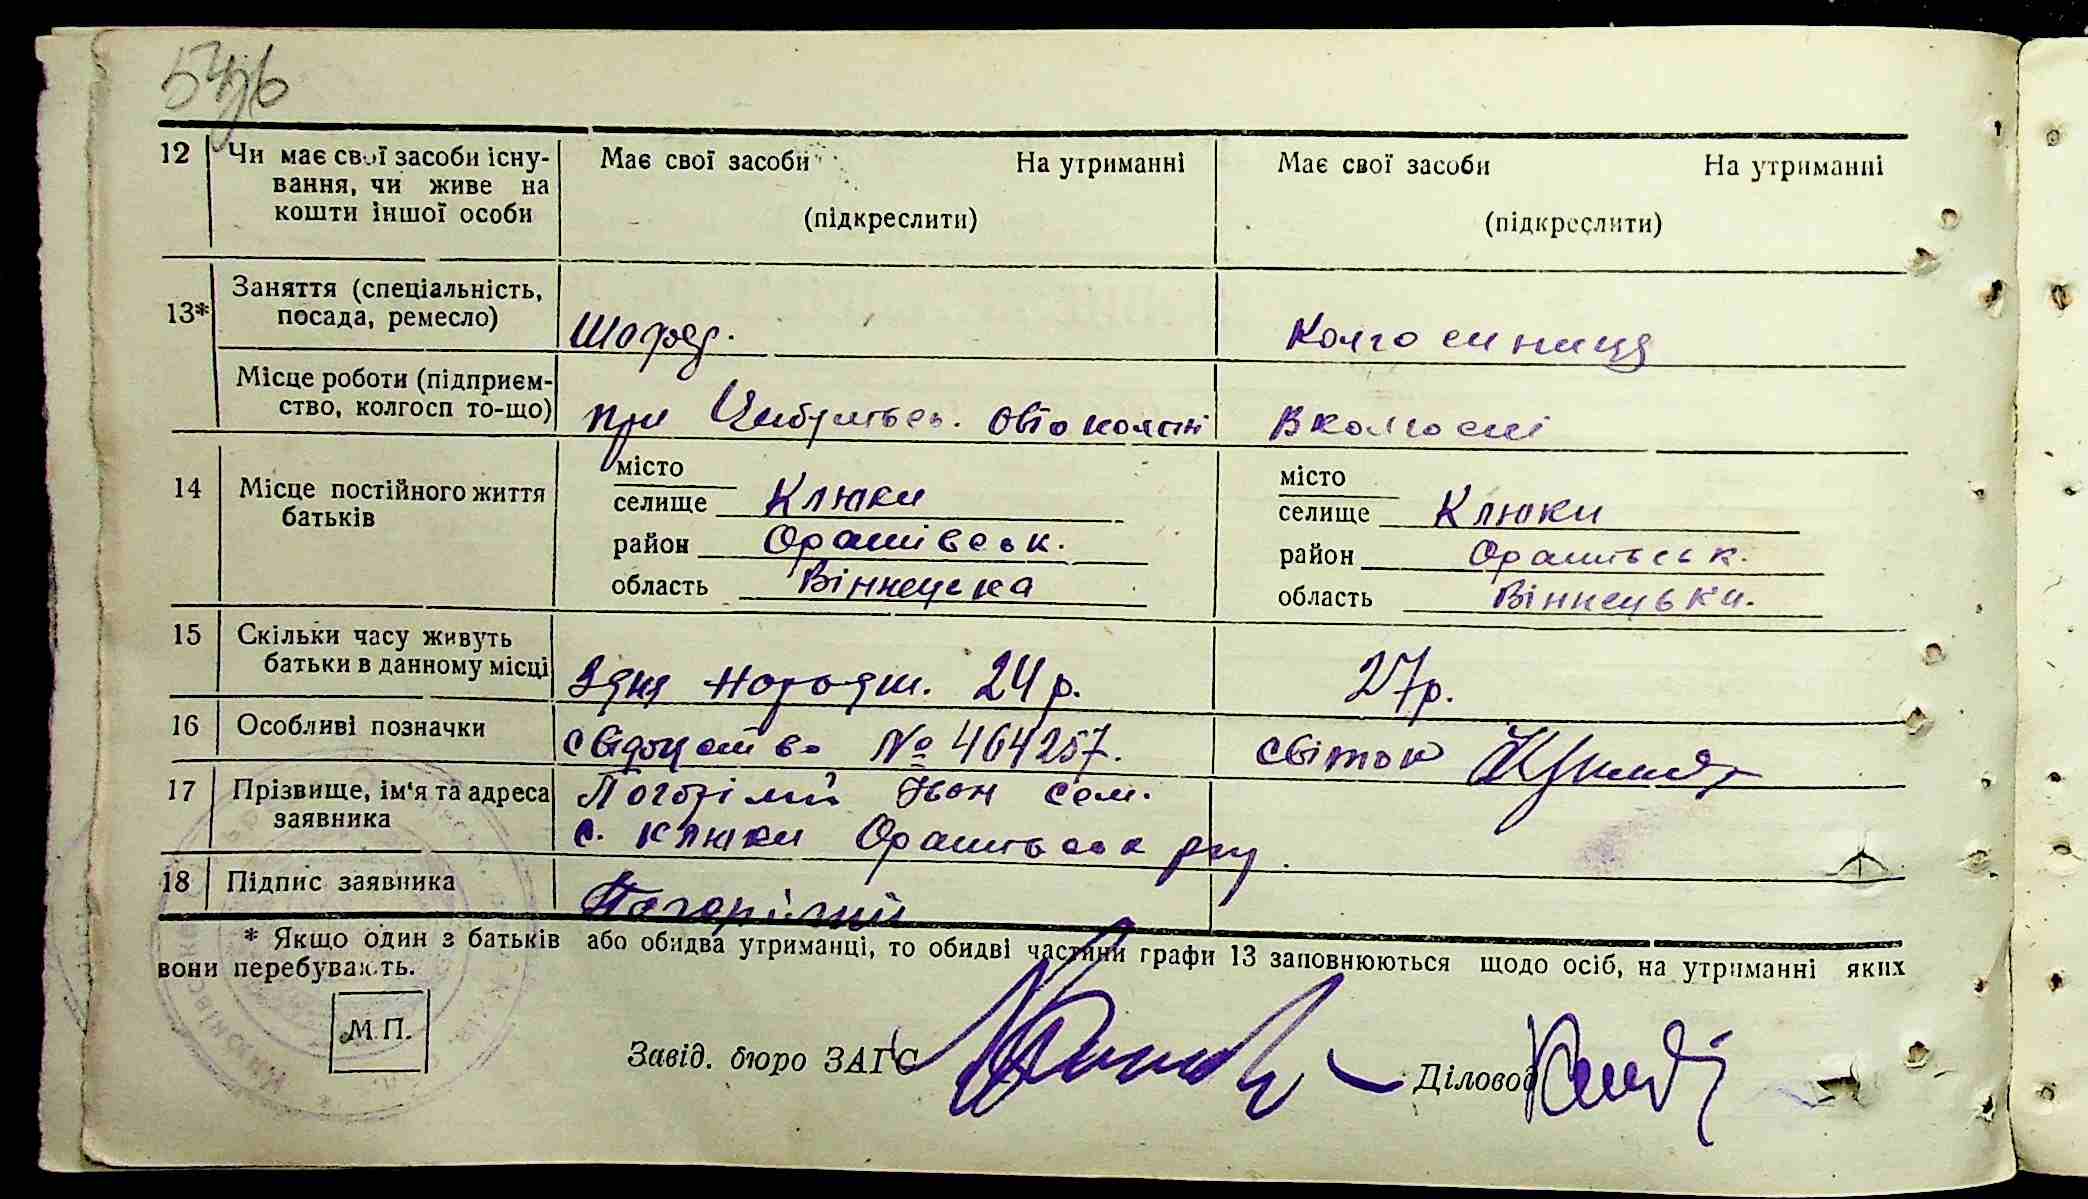 54зв
12 Чи має свої засоби існування, чи живе на кошти іншої особи
Має свої засоби На утриманні
(підкреслити)
Має свої засоби На утриманні
(підкреслити)
13* Заняття (спеціальність, посада, ремесло)
Шофер.
Колгоспниця
Місце роботи (підприємство, колгосп то-що)
при Цибулівсь. автоколоні
В колгоспі
14 Місце постійного життя батьків
місто
селище Клюки
район Оратівськ.
область Вінницька
місто
селище Клюки
район Оратівськ.
область Вінницька.
15 Скільки часу живуть батьки в данному місці
З дня народж. 24 р.
27 р.
16 Особливі позначки
свідоцтво № 464257.
свідок
17 Прізвище, ім'я та адреса заявника
Погорілий Іван Сем.
с. Клюки Оратівськ р-ну.
18 Підпис заявника
Погорілий
* Якщо один з батьків або обидва утриманці, то обидві частини графи 13 заповнюються щодо осіб, на утриманні яких
вони перебувають.
М.П.
Завід. бюро ЗАГС
Діловод